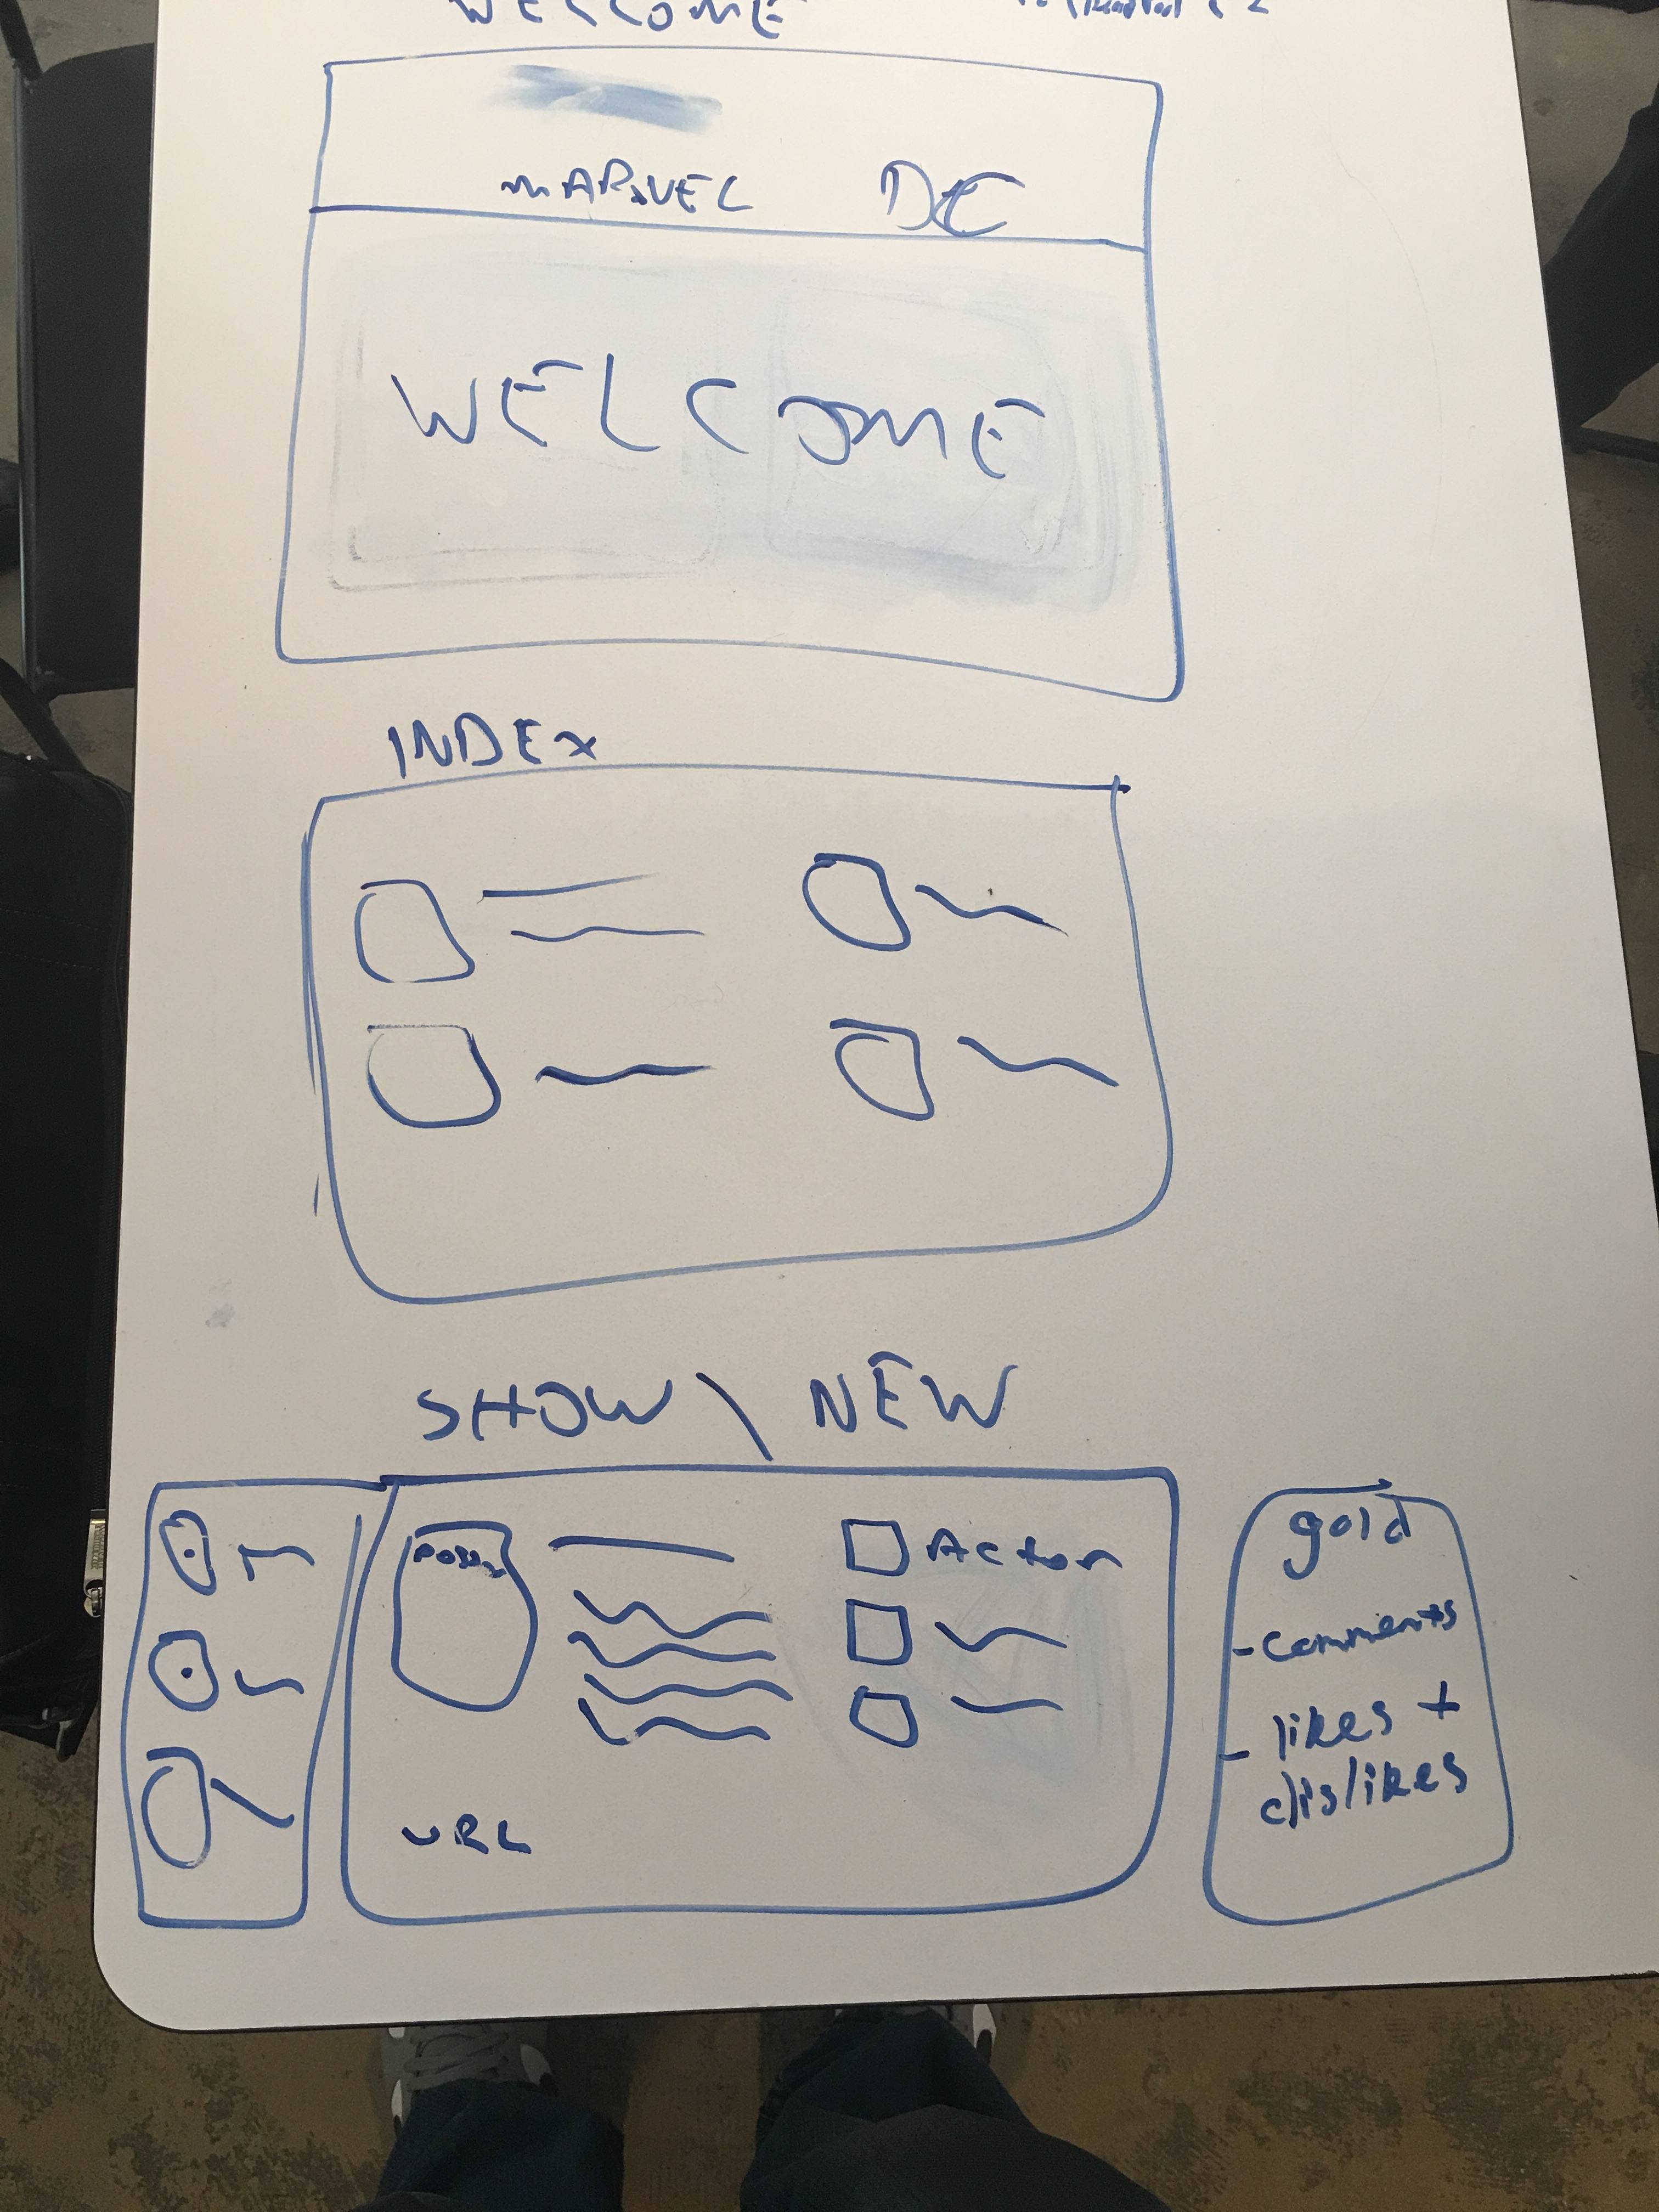 WELCOME
MARVEL DC
WELCOME
INDEX
SHOW \ NEW
Actor
URL
gold
- comments
- likes +
dislikes